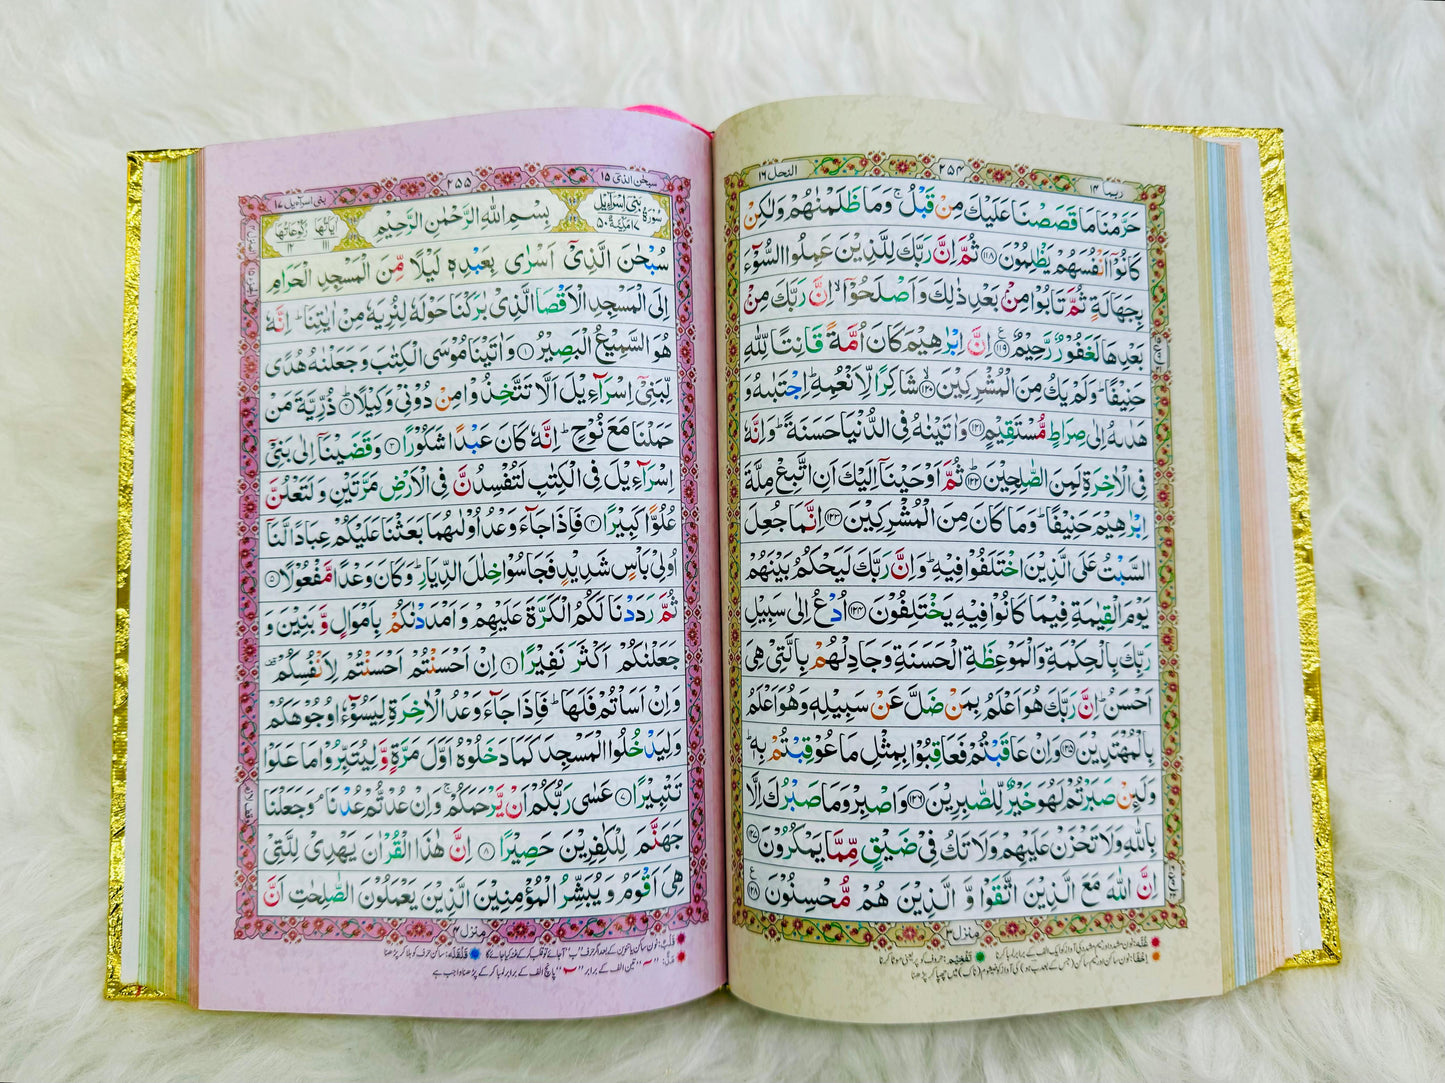 ربما ١٤
٢٥٤
النحل ١٦
حَرَّمْنَا مَا قَصَصْنَا عَلَيْكَ مِنْ قَبْلُ ۚ وَمَا ظَلَمْنٰهُمْ وَلٰكِنْ
كَانُوْۤا اَنْفُسَهُمْ يَظْلِمُوْنَ ﴿۱۱۸﴾ ثُمَّ اِنَّ رَبَّكَ لِلَّذِيْنَ عَمِلُوا السُّوْٓءَ
بِجَهَالَةٍ ثُمَّ تَابُوْا مِنْۢ بَعْدِ ذٰلِكَ وَاَصْلَحُوْۤا ۙ اِنَّ رَبَّكَ مِنْۢ
بَعْدِهَا لَغَفُوْرٌ رَّحِيْمٌ ﴿۱۱۹﴾ اِنَّ اِبْرٰهِيْمَ كَانَ اُمَّةً قَانِتًا لِّلّٰهِ
حَنِيْفًا ؕ وَلَمْ يَكُ مِنَ الْمُشْرِكِيْنَ ﴿۱۲۰﴾ شَاكِرًا لِّاَنْعُمِهٖ ؕ اِجْتَبٰىهُ وَ
هَدٰىهُ اِلٰى صِرَاطٍ مُّسْتَقِيْمٍ ﴿۱۲۱﴾ وَاٰتَيْنٰهُ فِى الدُّنْيَا حَسَنَةً ؕ وَاِنَّهٗ
فِى الْاٰخِرَةِ لَمِنَ الصّٰلِحِيْنَ ﴿۱۲۲﴾ ثُمَّ اَوْحَيْنَاۤ اِلَيْكَ اَنِ اتَّبِعْ مِلَّةَ
اِبْرٰهِيْمَ حَنِيْفًا ؕ وَمَا كَانَ مِنَ الْمُشْرِكِيْنَ ﴿۱۲۳﴾ اِنَّمَا جُعِلَ
السَّبْتُ عَلَى الَّذِيْنَ اخْتَلَفُوْا فِيْهِ ؕ وَاِنَّ رَبَّكَ لَيَحْكُمُ بَيْنَهُمْ
يَوْمَ الْقِيٰمَةِ فِيْمَا كَانُوْا فِيْهِ يَخْتَلِفُوْنَ ﴿۱۲۴﴾ اُدْعُ اِلٰى سَبِيْلِ
رَبِّكَ بِالْحِكْمَةِ وَالْمَوْعِظَةِ الْحَسَنَةِ وَجَادِلْهُمْ بِالَّتِىْ هِىَ
اَحْسَنُ ؕ اِنَّ رَبَّكَ هُوَ اَعْلَمُ بِمَنْ ضَلَّ عَنْ سَبِيْلِهٖ وَهُوَ اَعْلَمُ
بِالْمُهْتَدِيْنَ ﴿۱۲۵﴾ وَاِنْ عَاقَبْتُمْ فَعَاقِبُوْا بِمِثْلِ مَا عُوْقِبْتُمْ بِهٖ ؕ
وَلَئِنْ صَبَرْتُمْ لَهُوَ خَيْرٌ لِّلصّٰبِرِيْنَ ﴿۱۲۶﴾ وَاصْبِرْ وَمَا صَبْرُكَ اِلَّا
بِاللّٰهِ وَلَا تَحْزَنْ عَلَيْهِمْ وَلَا تَكُ فِىْ ضَيْقٍ مِّمَّا يَمْكُرُوْنَ ﴿۱۲۷﴾
اِنَّ اللّٰهَ مَعَ الَّذِيْنَ اتَّقَوْا وَّ الَّذِيْنَ هُمْ مُّحْسِنُوْنَ ﴿۱۲۸﴾
منزل ۳
سبحٰن الذی ١٥
٢٥٥
بنی اسرآءیل ١٧
سُوْرَةُ بَنِىْۤ اِسْرَآءِيْل
١٧ مَكِّيَّةٌ ٥٠
بِسْمِ اللّٰهِ الرَّحْمٰنِ الرَّحِيْمِ
اٰيَاتُهَا ١١١
رُكُوْعَاتُهَا ١٢
سُبْحٰنَ الَّذِىْۤ اَسْرٰى بِعَبْدِهٖ لَيْلًا مِّنَ الْمَسْجِدِ الْحَرَامِ
اِلَى الْمَسْجِدِ الْاَقْصَا الَّذِىْ بٰرَكْنَا حَوْلَهٗ لِنُرِيَهٗ مِنْ اٰيٰتِنَا ؕ اِنَّهٗ
هُوَ السَّمِيْعُ الْبَصِيْرُ ﴿۱﴾ وَاٰتَيْنَا مُوْسَى الْكِتٰبَ وَجَعَلْنٰهُ هُدًى
لِّبَنِىْۤ اِسْرَآءِيْلَ اَلَّا تَتَّخِذُوْا مِنْ دُوْنِىْ وَكِيْلًا ؕ ﴿۲﴾ ذُرِّيَّةَ مَنْ
حَمَلْنَا مَعَ نُوْحٍ ؕ اِنَّهٗ كَانَ عَبْدًا شَكُوْرًا ﴿۳﴾ وَقَضَيْنَاۤ اِلٰى بَنِىْۤ
اِسْرَآءِيْلَ فِى الْكِتٰبِ لَتُفْسِدُنَّ فِى الْاَرْضِ مَرَّتَيْنِ وَلَتَعْلُنَّ
عُلُوًّا كَبِيْرًا ﴿۴﴾ فَاِذَا جَآءَ وَعْدُ اُوْلٰىهُمَا بَعَثْنَا عَلَيْكُمْ عِبَادًا لَّنَاۤ
اُولِىْ بَاْسٍ شَدِيْدٍ فَجَاسُوْا خِلٰلَ الدِّيَارِ ؕ وَكَانَ وَعْدًا مَّفْعُوْلًا ﴿۵﴾
ثُمَّ رَدَدْنَا لَكُمُ الْكَرَّةَ عَلَيْهِمْ وَاَمْدَدْنٰكُمْ بِاَمْوَالٍ وَّ بَنِيْنَ وَ
جَعَلْنٰكُمْ اَكْثَرَ نَفِيْرًا ﴿۶﴾ اِنْ اَحْسَنْتُمْ اَحْسَنْتُمْ لِاَنْفُسِكُمْ ۟
وَاِنْ اَسَاْتُمْ فَلَهَا ؕ فَاِذَا جَآءَ وَعْدُ الْاٰخِرَةِ لِيَسُوْٓءٗا وُجُوْهَكُمْ
وَلِيَدْخُلُوا الْمَسْجِدَ كَمَا دَخَلُوْهُ اَوَّلَ مَرَّةٍ وَّلِيُتَبِّرُوْا مَا عَلَوْا
تَتْبِيْرًا ﴿۷﴾ عَسٰى رَبُّكُمْ اَنْ يَّرْحَمَكُمْ ۚ وَاِنْ عُدْتُّمْ عُدْنَا ۘ وَجَعَلْنَا
جَهَنَّمَ لِلْكٰفِرِيْنَ حَصِيْرًا ﴿۸﴾ اِنَّ هٰذَا الْقُرْاٰنَ يَهْدِىْ لِلَّتِىْ
هِىَ اَقْوَمُ وَيُبَشِّرُ الْمُؤْمِنِيْنَ الَّذِيْنَ يَعْمَلُوْنَ الصّٰلِحٰتِ اَنَّ
منزل ۴